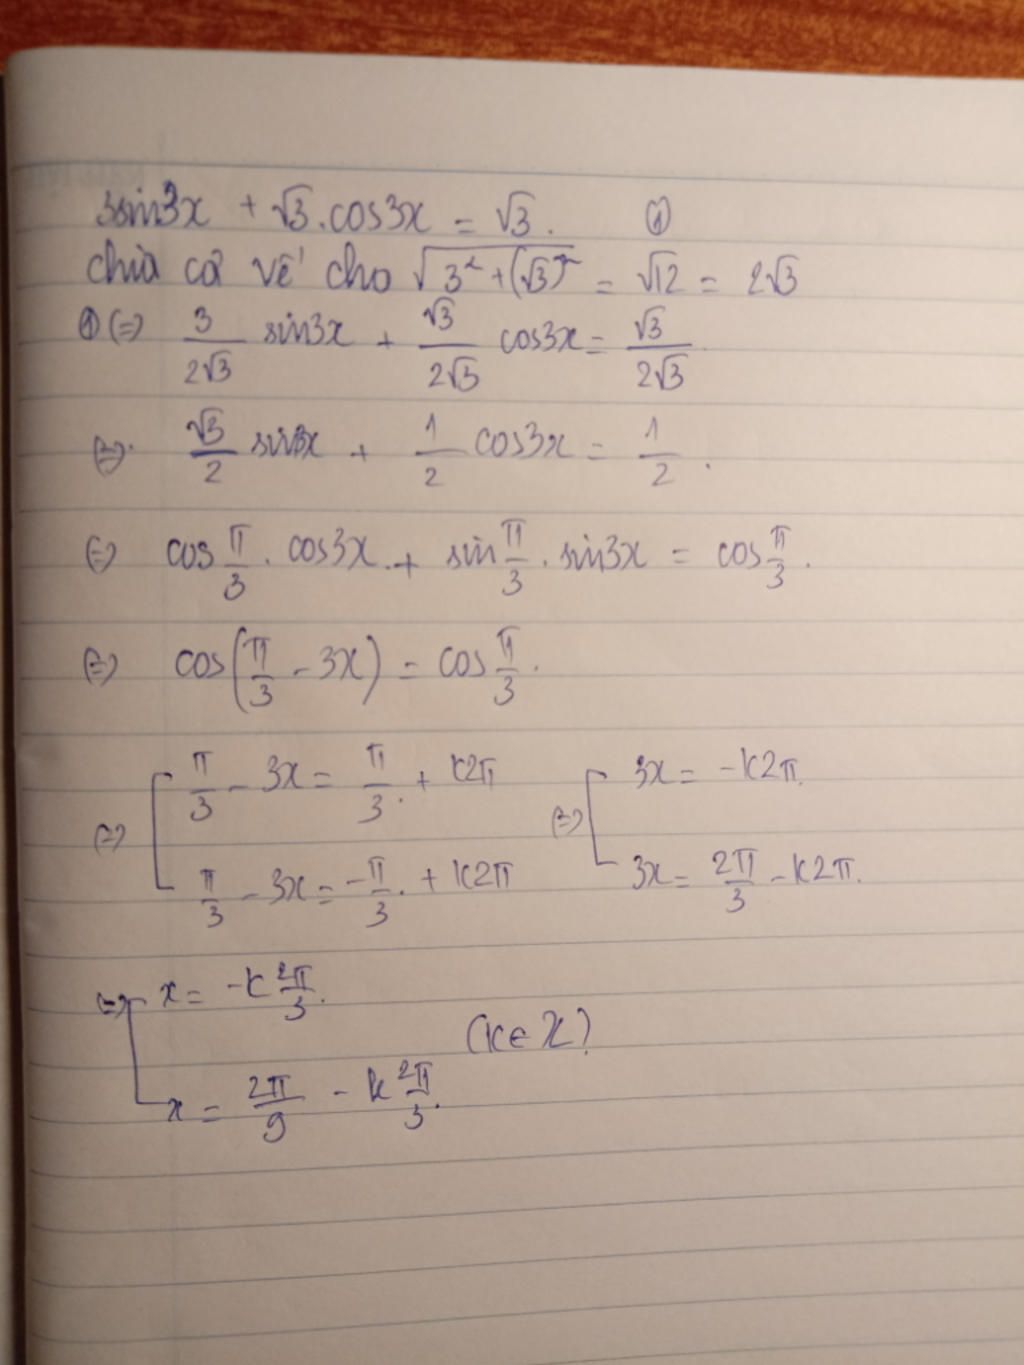 3sin3x + √3.cos3x = √3. ①
chia cả vế cho √(3² + (√3)²) = √12 = 2√3
① (=) 3/(2√3) sin3x + √3/(2√3) cos3x = √3/(2√3).
(=) √3/2 sin3x + 1/2 cos3x = 1/2.
(=) cos π/3 . cos3x + sin π/3 . sin3x = cos π/3.
(=) cos(π/3 - 3x) = cos π/3.
(=) [ π/3 - 3x = π/3 + k2π (=) [ 3x = -k2π.
π/3 - 3x = -π/3 + k2π 3x = 2π/3 - k2π.
(=) [ x = -k 2π/3.
(k∈Z)
x = 2π/9 - k 2π/3.